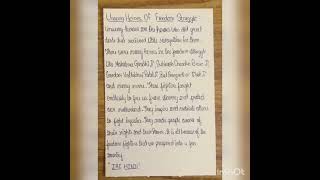 Unsung Heroes Of Freedom Struggle
Unsung heroes are the heroes who did great
deeds but received little recognition for them.
There were many heroes in the freedom struggle
like Mahatma Gandhi Ji, Subhash Chandra Bose Ji,
Sardar Vallabhbhai Patel Ji,
and many more. These fighters fought
endlessly to free us from slavery and protect
our motherland. They inspire and motivate others
to fight together. They made people aware of
their rights and freedom. It is all because of the
freedom fighters that we prospered into a free
country.
"JAI HIND"